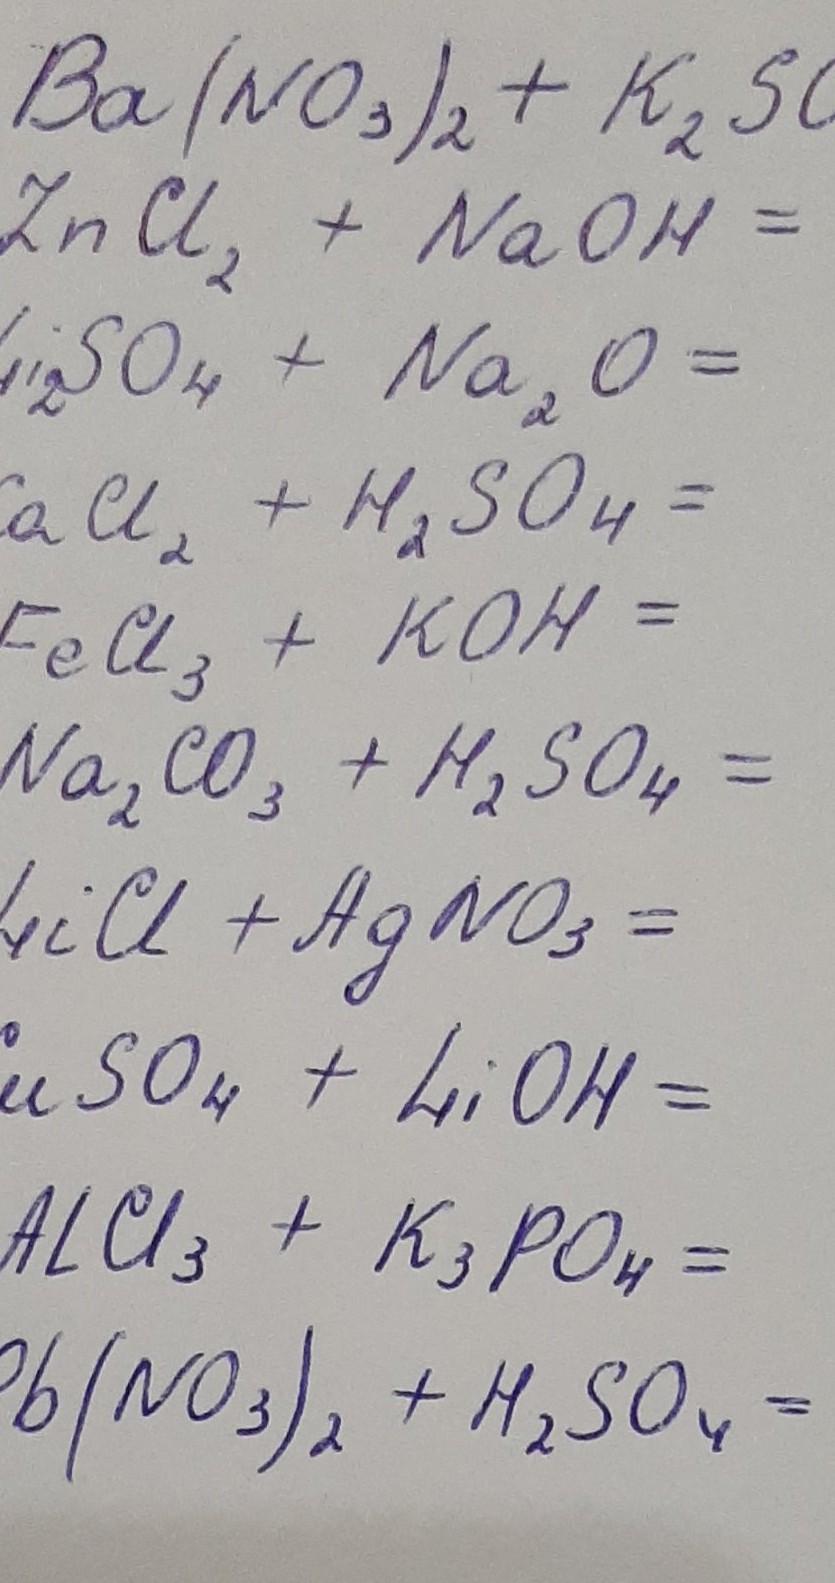 Ba(NO₃)₂ + K₂SO
ZnCl₂ + NaOH =
Li₂SO₄ + Na₂O =
CaCl₂ + H₂SO₄ =
FeCl₃ + KOH =
Na₂CO₃ + H₂SO₄ =
LiCl + AgNO₃ =
CuSO₄ + LiOH =
AlCl₃ + K₃PO₄ =
Pb(NO₃)₂ + H₂SO₄ =